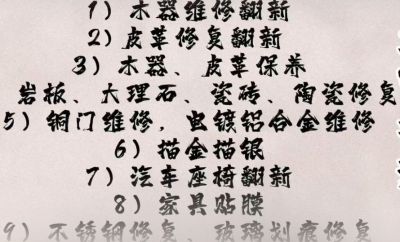 1）木器维修翻新
2）皮革修复翻新
3）木器、皮革保养
岩板、大理石、瓷砖、陶瓷修复
5）铜门维修，电镀铝合金维修
6）描金描银
7）汽车座椅翻新
8）家具贴膜
9）不锈钢修复、玻璃划痕修复